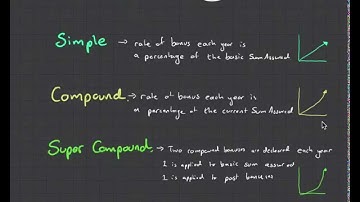 Simple → rate of bonus each year is
a percentage of the basic Sum Assured
Compound → rate of bonus each year is
a percentage of the current Sum Assured
Super Compound → Two compound bonuses are declared each year
1 is applied to basic sum assured
1 is applied to past bonuses